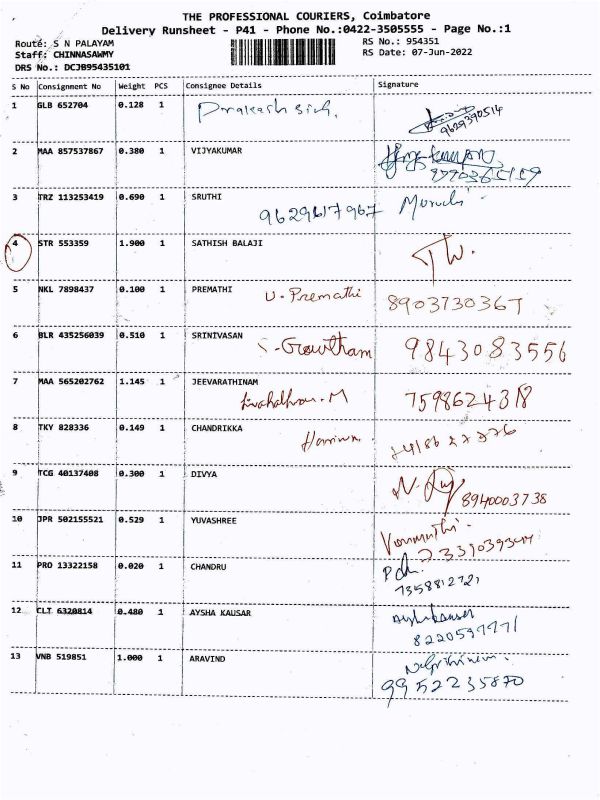 THE PROFESSIONAL COURIERS, Coimbatore
Delivery Runsheet - P41 - Phone No.:0422-3505555 - Page No.:1
Route: S N PALAYAM RS No.: 954351
Staff: CHINNASAWMY RS Date: 07-Jun-2022
DRS No.: DCJB95435101
S No Consignment No Weight PCS Consignee Details Signature
1 GLB 652704 0.128 1 Prakash
9629390514
2 MAA 857537867 0.380 1 VIJYAKUMAR
3 TRZ 113253419 0.690 1 SRUTHI
9629617967
4 STR 553359 1.900 1 SATHISH BALAJI
5 NKL 7898437 0.100 1 PREMATHI
U. Premathi 8903730367
6 BLR 435256039 0.510 1 SRINIVASAN
S. Growtham 9843083556
7 MAA 565202762 1.145 1 JEEVARATHINAM
7598624318
8 TKY 828336 0.149 1 CHANDRIKKA
9 TCG 40137408 0.300 1 DIVYA
8940003738
10 JPR 502155521 0.529 1 YUVASHREE
11 PRO 13322158 0.020 1 CHANDRU
12 CLT 6320814 0.480 1 AYSHA KAUSAR
13 VNB 519851 1.000 1 ARAVIND
9952235870